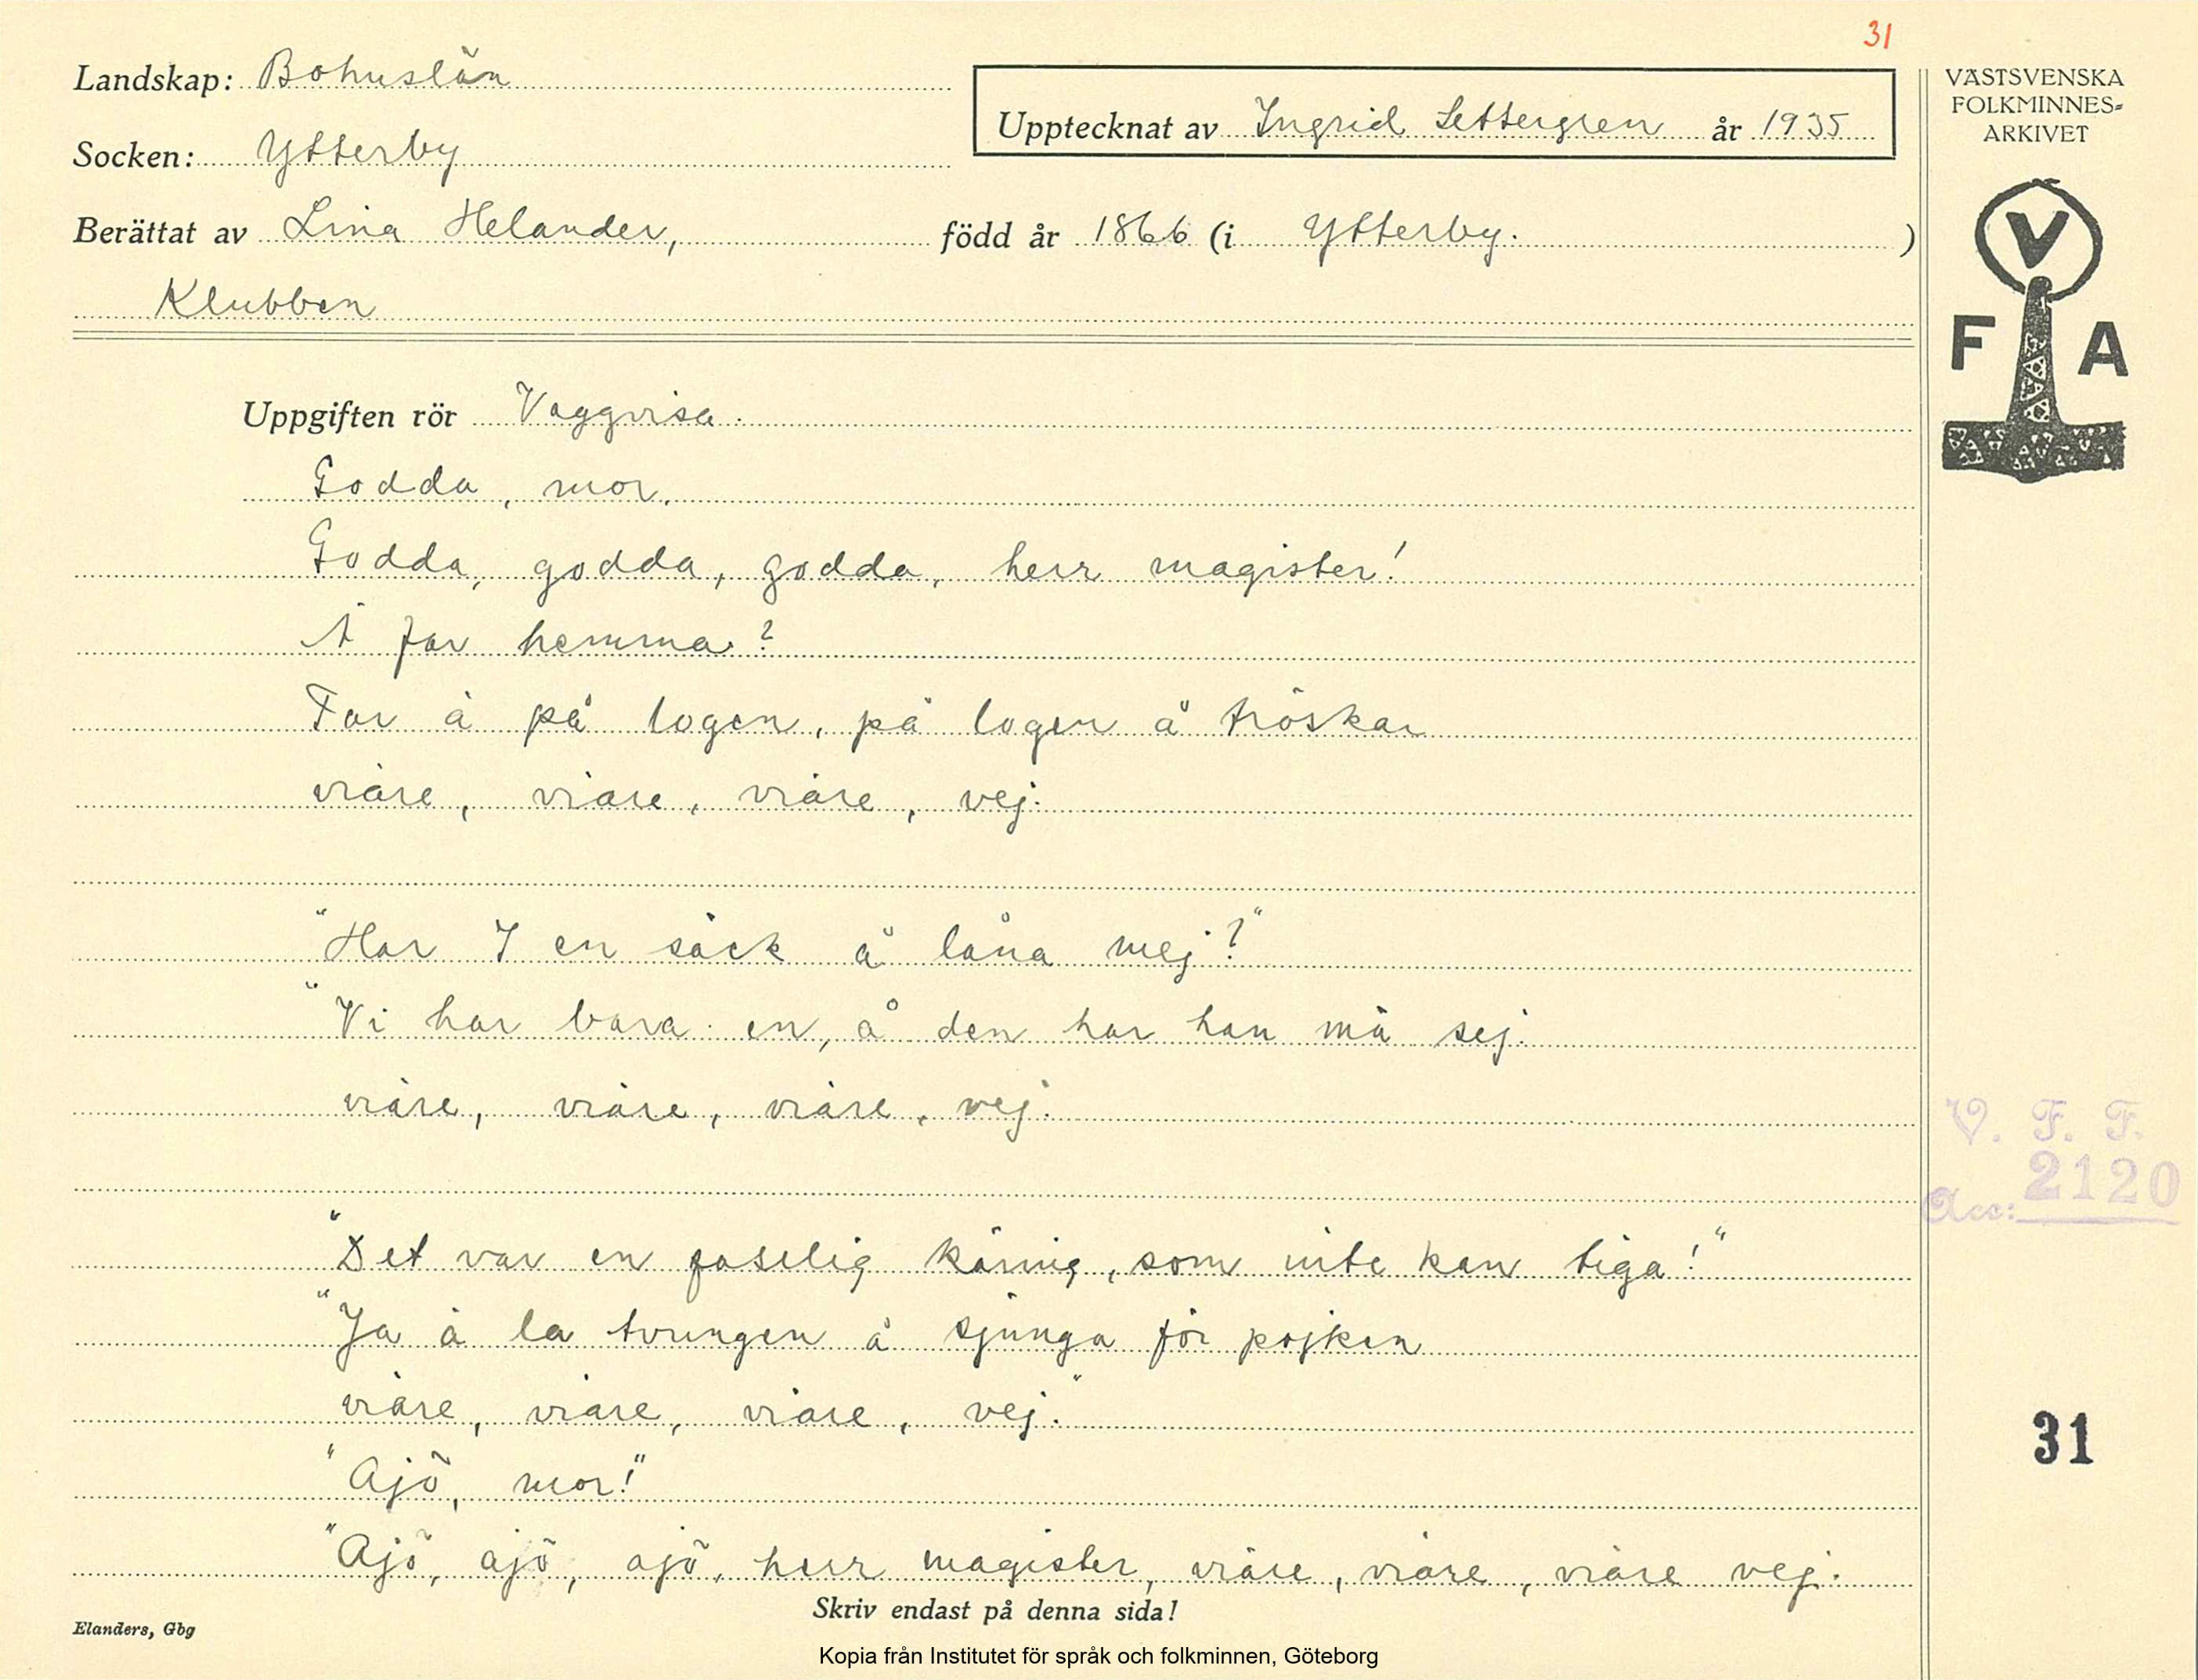 31
Landskap: Bohuslän
Upptecknat av Ingrid Settergren år 1935
Socken: Ytterby
Berättat av Lina Helander, född år 1866 (i Ytterby.)
Klubben
VÄSTSVENSKA
FOLKMINNES-
ARKIVET
V
F A
Uppgiften rör Vaggvisa.
Godda, mor.
Godda, godda, godda, herr magister!
Ä far hemma?
Far ä på logen, på logen å tröskar
viäre, viäre, viäre, vej.
"Har I en säck å låna mej?"
"Vi har bara en, å den har han mä sej.
viäre, viäre, viäre, vej.
"Det var en faselig käring, som inte kan tiga!"
"Ja ä la tvungen å sjunga för pojken
viäre, viäre, viäre, vej."
"Ajö, mor!"
"Ajö, ajö, ajö, herr magister, viäre, viäre, viäre vej.
V. F. F.
Acc: 2120
31
Skriv endast på denna sida!
Elanders, Gbg
Kopia från Institutet för språk och folkminnen, Göteborg